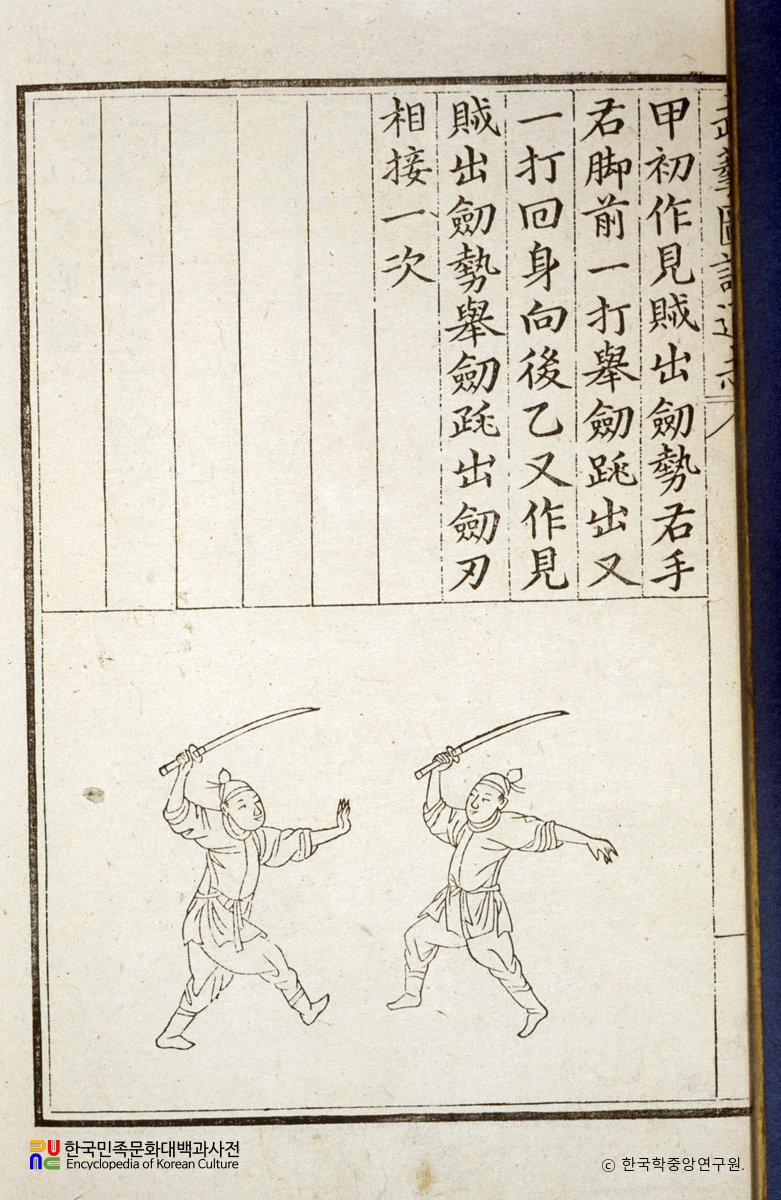 甲初作見賊出劒勢右手
右脚前一打擧劒跳出又
一打回身向後乙又作見
賊出劒勢擧劒跳出劒刃
相接一次
한국민족문화대백과사전
Encyclopedia of Korean Culture
ⓒ 한국학중앙연구원.